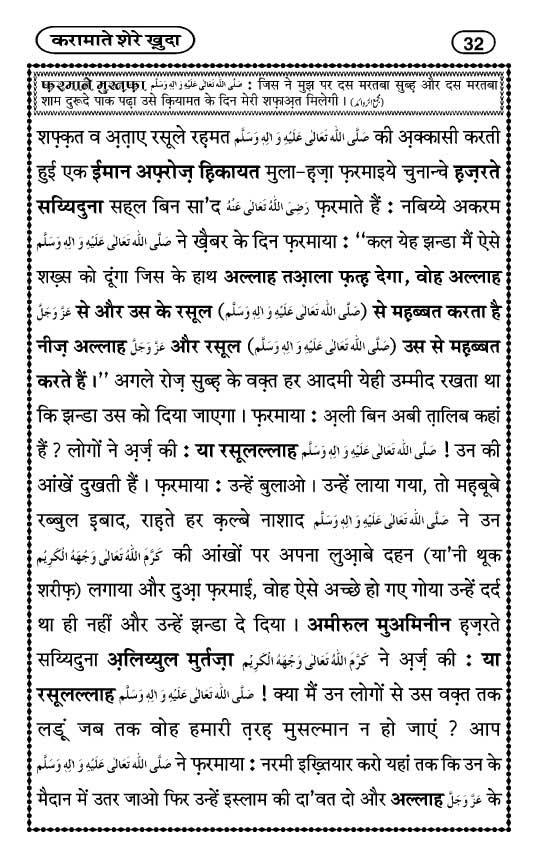 करामाते शेरे ख़ुदा
32
फ़रमाने मुस्तफ़ा صَلَّى اللهُ تَعَالٰى عَلَيْهِ وَاٰلِهٖ وَسَلَّم : जिस ने मुझ पर दस मरतबा सुब्ह और दस मरतबा
शाम दुरूदे पाक पढ़ा उसे क़ियामत के दिन मेरी शफ़ाअ़त मिलेगी । (مجمع الزوائد)
शफ़्क़त व अ़ताए रसूले रहमत صَلَّى اللهُ تَعَالٰى عَلَيْهِ وَاٰلِهٖ وَسَلَّم की अ़क्कासी करती
हुई एक ईमान अफ़्रोज़ हि़कायत मुला-ह़ज़ा फ़रमाइये चुनान्चे ह़ज़रते
सय्यिदुना सह्ल बिन सा'द رَضِىَ اللهُ تَعَالٰى عَنْهُ फ़रमाते हैं : नबिय्ये अकरम
صَلَّى اللهُ تَعَالٰى عَلَيْهِ وَاٰلِهٖ وَسَلَّم ने ख़ैबर के दिन फ़रमाया : ‘‘कल येह झन्डा मैं ऐसे
शख़्स को दूंगा जिस के हाथ अल्लाह तआ़ला फ़त्ह़ देगा, वोह अल्लाह
عَزَّوَجَلَّ से और उस के रसूल (صَلَّى اللهُ تَعَالٰى عَلَيْهِ وَاٰلِهٖ وَسَلَّم) से मह़ब्बत करता है
नीज़ अल्लाह عَزَّوَجَلَّ और रसूल (صَلَّى اللهُ تَعَالٰى عَلَيْهِ وَاٰلِهٖ وَسَلَّم) उस से मह़ब्बत
करते हैं ।’’ अगले रोज़ सुब्ह़ के वक़्त हर आदमी येही उम्मीद रखता था
कि झन्डा उस को दिया जाएगा । फ़रमाया : अ़ली बिन अबी त़ालिब कहां
हैं ? लोगों ने अ़र्ज़ की : या रसूलल्लाह صَلَّى اللهُ تَعَالٰى عَلَيْهِ وَاٰلِهٖ وَسَلَّم ! उन की
आंखें दुखती हैं । फ़रमाया : उन्हें बुलाओ । उन्हें लाया गया, तो मह़बूबे
रब्बुल इबाद, राह़ते हर क़ल्बे नाशाद صَلَّى اللهُ تَعَالٰى عَلَيْهِ وَاٰلِهٖ وَسَلَّم ने उन
كَرَّمَ اللهُ تَعَالٰى وَجْهَهُ الْكَرِيْم की आंखों पर अपना लुआ़बे दहन (या'नी थूक
शरीफ़) लगाया और दुआ़ फ़रमाई, वोह ऐसे अच्छे हो गए गोया उन्हें दर्द
था ही नहीं और उन्हें झन्डा दे दिया । अमीरुल मुअमिनीन ह़ज़रते
सय्यिदुना अ़लिय्युल मुर्तज़ा كَرَّمَ اللهُ تَعَالٰى وَجْهَهُ الْكَرِيْم ने अ़र्ज़ की : या
रसूलल्लाह صَلَّى اللهُ تَعَالٰى عَلَيْهِ وَاٰلِهٖ وَسَلَّم ! क्या मैं उन लोगों से उस वक़्त तक
लड़ूं जब तक वोह हमारी त़रह़ मुसल्मान न हो जाएं ? आप
صَلَّى اللهُ تَعَالٰى عَلَيْهِ وَاٰلِهٖ وَسَلَّم ने फ़रमाया : नरमी इख़्तियार करो यहां तक कि उन के
मैदान में उतर जाओ फिर उन्हें इस्लाम की दा'वत दो और अल्लाह عَزَّوَجَلَّ के